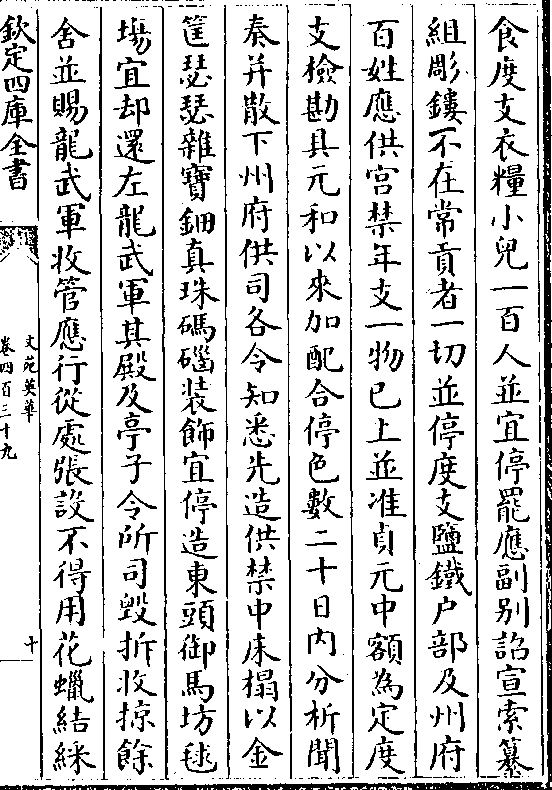 食度支衣糧小兒一百人並宜停罷應副别詔宣索纂
組彫鏤不在常貢者一切並停度支鹽鐵户部及州府
百姓應供宫禁年支一物已上並准貞元中額為定度
支檢勘具元和以來加配合停色數二十日内分析聞
奏并散下州府供司各令知悉先造供禁中床榻以金
筐瑟瑟雜寶鈿真珠碼碯装飾宜停造東頭御馬坊毬
場宜却還左龍武軍其殿及亭子令所司毁折收掠餘
舍並賜龍武軍收管應行從處張設不得用花蠟結綵
欽定四庫全書
文苑英華
卷四百三十九
十